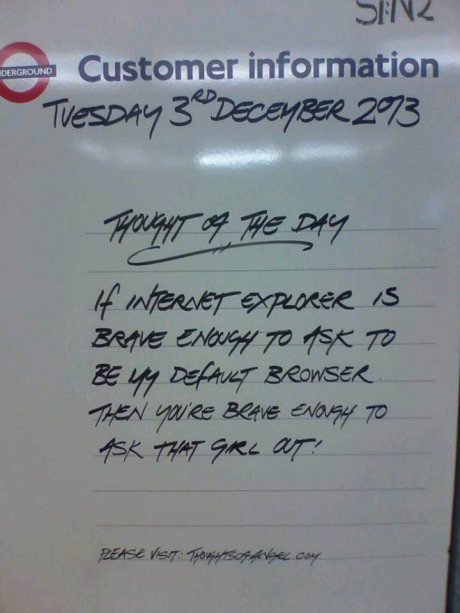 S1:N2
UNDERGROUND
Customer information
TUESDAY 3RD DECEMBER 2013
THOUGHT OF THE DAY
If INTERNET EXPLORER IS
BRAVE ENOUGH TO ASK TO
BE MY DEFAULT BROWSER.
THEN YOU'RE BRAVE ENOUGH TO
ASK THAT GIRL OUT!
PLEASE VISIT: THOUGHTSOFANGEL.COM